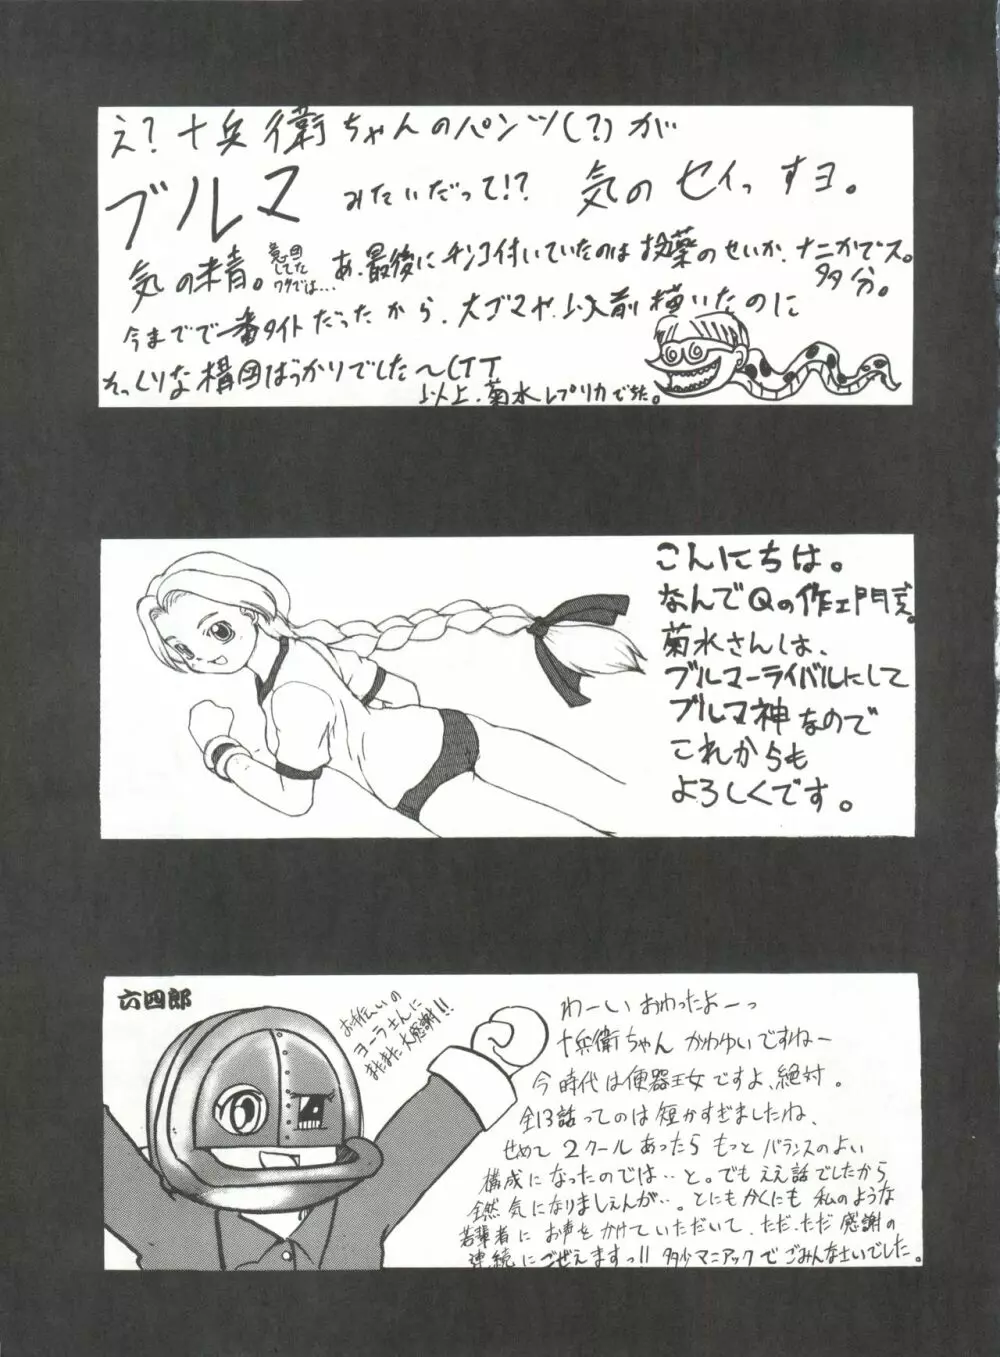 え?十兵衛ちゃんのパンツ(?)が
ブルマ みたいだって!? 気のセイっすヨ。
気の精。意図してたワケでは…あ、最後にチンコ付いていたのは投薬のせいか、ナニかでス。多分。
今までで一番タイトだったから、大ゴマや、以前描いたのに
そっくりな構図ばっかりでした〜(TT
以上、菊水レプリカでした。
こんにちは。
なんでQの作ェ門デス。
菊水さんは、
ブルマーライバルにして
ブルマ神なので
これからも
よろしくです。
六四郎
お手伝いの
ヨーラさんに
またまた大感謝!!
わーい おわったよーっ
十兵衛ちゃん かわゆいですねー
今時代は便器王女ですよ、絶対。
全13話ってのは短かすぎましたね、
せめて2クールあったらもっとバランスのよい
構成になったのでは‥と。でもええ話でしたから
全然気になりましぇんが‥。とにもかくにも私のような
若輩者にお声をかけていただいて、ただ・ただ感謝の
連続にごぜえますっ!!多少マニアックでごみんなさいでした。